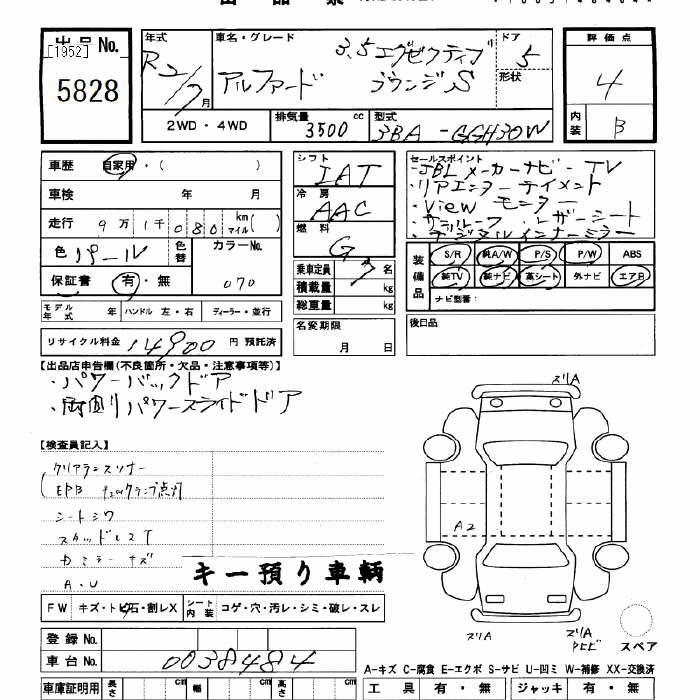 出品No.
[1952]
5828
年式
R2/7月
車名・グレード
3.5エグゼクティブ
アルファード ラウンジS
ドア
5
形状
評価点
4
内装
B
2WD・4WD
排気量
3500 cc
型式
3BA-GGH30W
車歴 自家用・( )
車検 年 月
走行 9万1千080 km マイル( )
色 パール 色替
カラーNo.
070
保証書 有・無
モデル年式 年 ハンドル 左・右 ディーラー・並行
リサイクル料金 14900 円 預託済
シフト
IAT
冷房
AAC
燃料
G
乗車定員 7 名
積載量 kg
総重量 kg
名変期限
月 日
セールスポイント
・JBLメーカーナビ・TV
・リアエンターテイメント
・Viewモニター
・サンルーフ・レザーシート
・デジタルインナーミラー
装備品
S/R 純A/W P/S P/W ABS
純TV 純ナビ 革シート 外ナビ エアB
ナビ型番:
後日品
【出品店申告欄(不良箇所・欠品・注意事項等)】
・パワーバックドア
・両側パワースライドドア
【検査員記入】
クリアランスソナー
EPB チェックランプ点灯
シートシワ
キズ
A.U
キー預り車輌
FW キズ・トビ石・割レX シート内装 コゲ・穴・汚レ・シミ・破レ・スレ
登録No.
車台No. 0038484
車庫証明用 長さ cm 幅 cm 高さ cm
ズリA
A2
ズリA
ズリA
スペア
A-キズ C-腐食 E-エクボ S-サビ U-凹ミ W-補修 XX-交換済
工具 有・無 ジャッキ 有・無